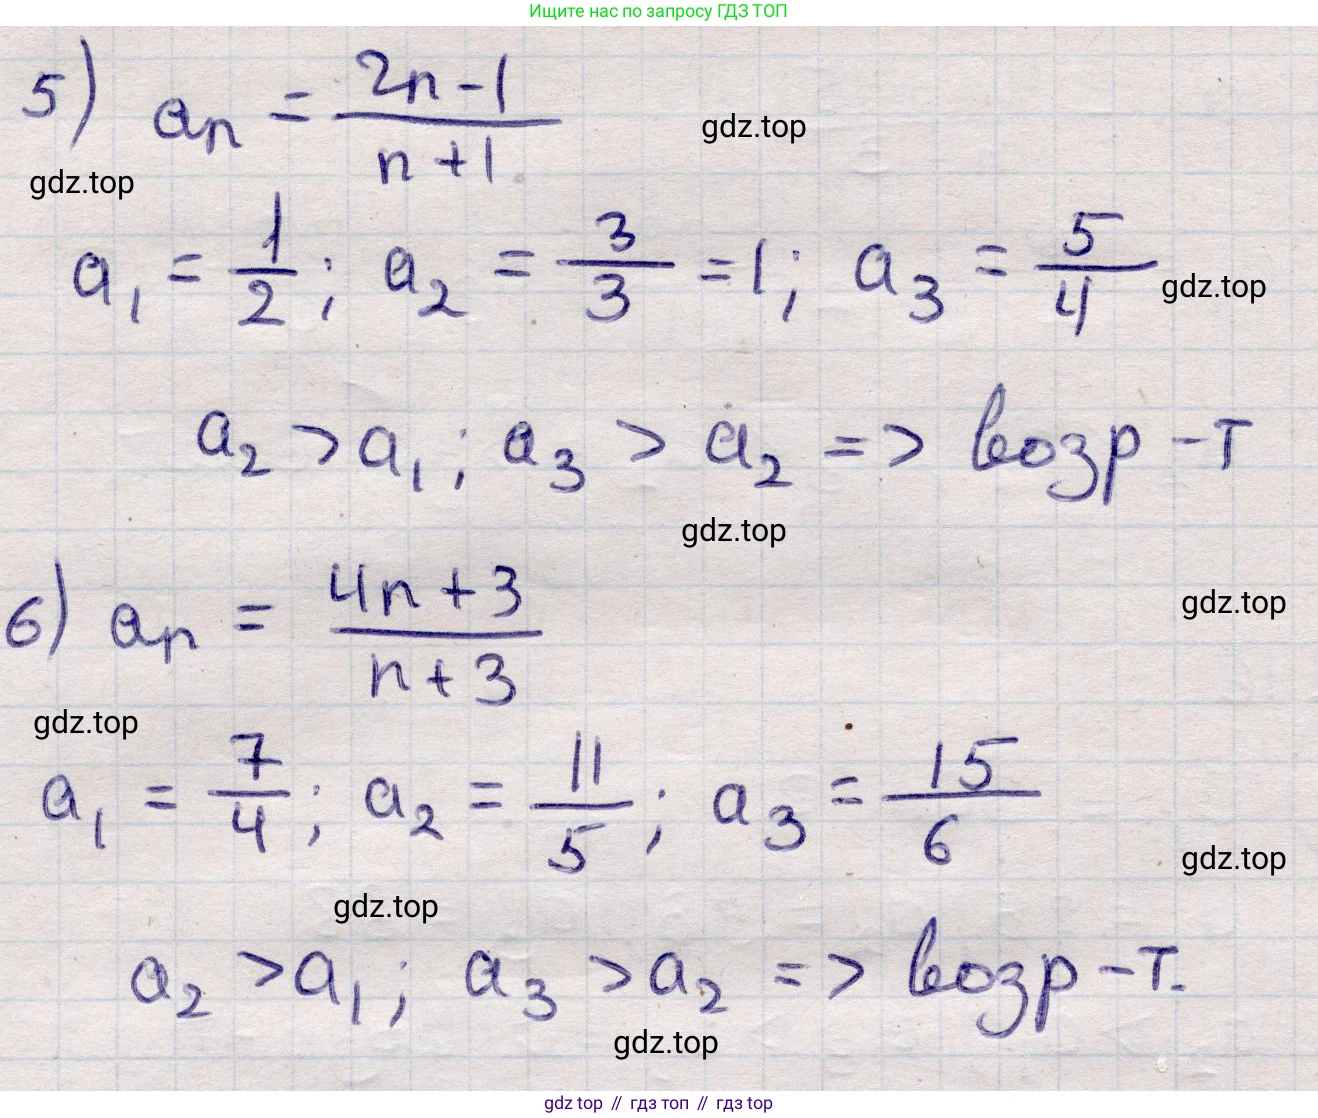 Ищите нас по запросу ГДЗ ТОП
5) aₙ = (2n-1)/(n+1)
gdz.top
gdz.top
a₁ = 1/2; a₂ = 3/3 = 1; a₃ = 5/4
gdz.top
a₂ > a₁; a₃ > a₂ => возр-т
gdz.top
6) aₙ = (4n+3)/(n+3)
gdz.top
gdz.top
a₁ = 7/4; a₂ = 11/5; a₃ = 15/6
gdz.top
gdz.top
a₂ > a₁; a₃ > a₂ => возр-т.
gdz.top
gdz top // гдз топ // гдз top